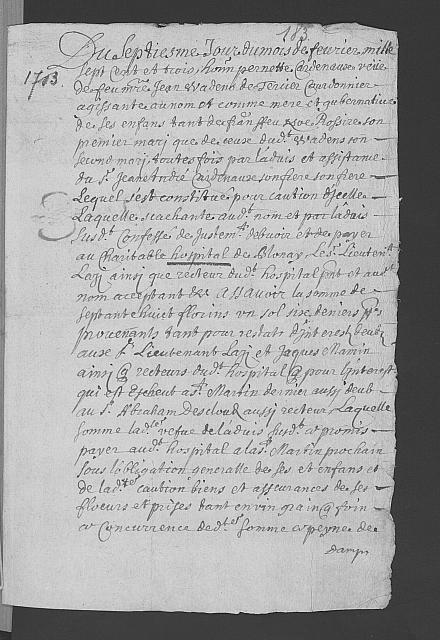 183
Du Septiesme Jour du mois de fevrier mille
1703
Sept Cent et trois, honn. pernette Cardenause veuve
de feu mre Jean Vadens de Cordonnier
agissante au nom et comme mere et gubernatrice
de ses enfans tant de feu Rossire son
premier mary que de ceux dudt Vadens son
second mary, toutesfois par ladvis et assistance
du Sr Jean André Cardinause son frere
Lequel s'est constitué pour caution d'Icelle
Laquelle scachante audt nom et par ladvis
susdt Confesse de Justemt debvoir et de payer
au Charitable hospital de Blonay Le Sr Lieutent
Lazi ainsi que recteur dudt hospital pnt et audt
nom acceptant &c Assavoir la somme de
septante huict florins un sol six deniers pts
provenants tant pour restats d'interest deubt
aux Sr Lieutenant Lazi et Jaques Manin
ainsi q recteurs dudt hospital q pour l'interest
qui est Escheut a St Martin dernier aussi deub
au Sr Abraham Descloud aussi recteur Laquelle
somme ladte vefve de ladvis susdt promis
payer audt hospital a la St Martin prochain
sous l'obligation generalle de ses et enfans et
de ladte caution biens et asseurances de ses
fleurs et prises tant en vin grain q foin
Concurrence de dte somme peyne de
damps